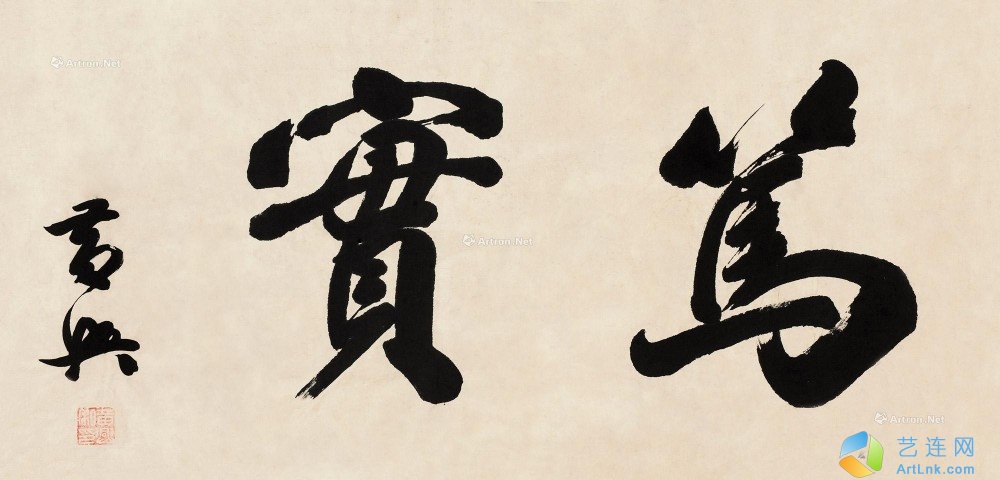 篤實
黄興
Artron.Net
Artron.Net
Artron.Net
艺连网
ArtLnk.com